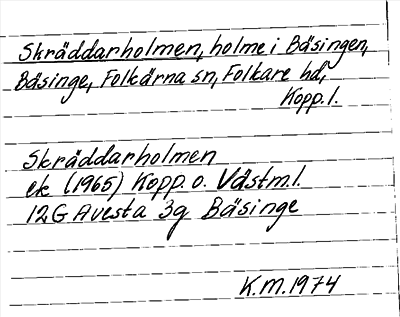 Skräddarholmen, holme i Bäsingen,
Bäsinge, Folkärna sn, Folkare hd,
Kopp. l.
Skräddarholmen
ek (1965) Kopp. o. Västm. l.
12G Avesta 3g Bäsinge
K.M. 1974